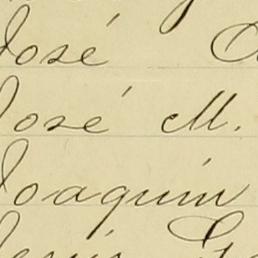 José
José M.
Joaquin